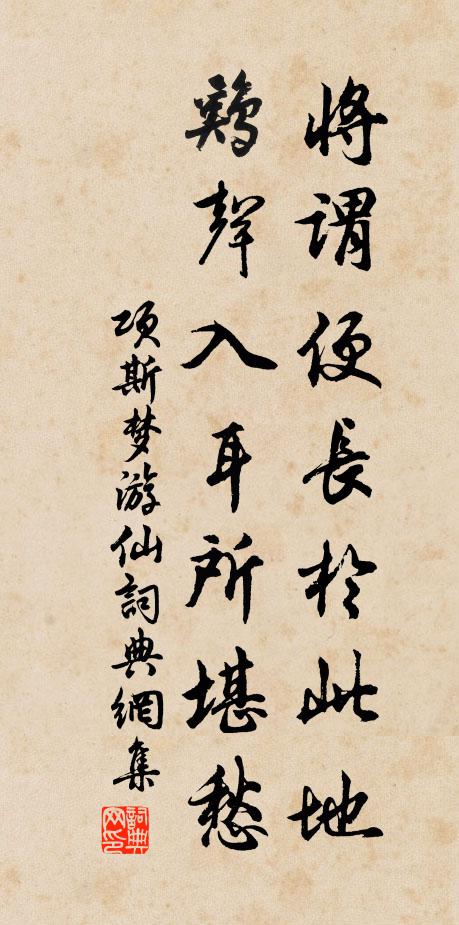 將謂便長於此地
鷄聲入耳所堪愁
项斯梦游仙詞典網集
詞典網印